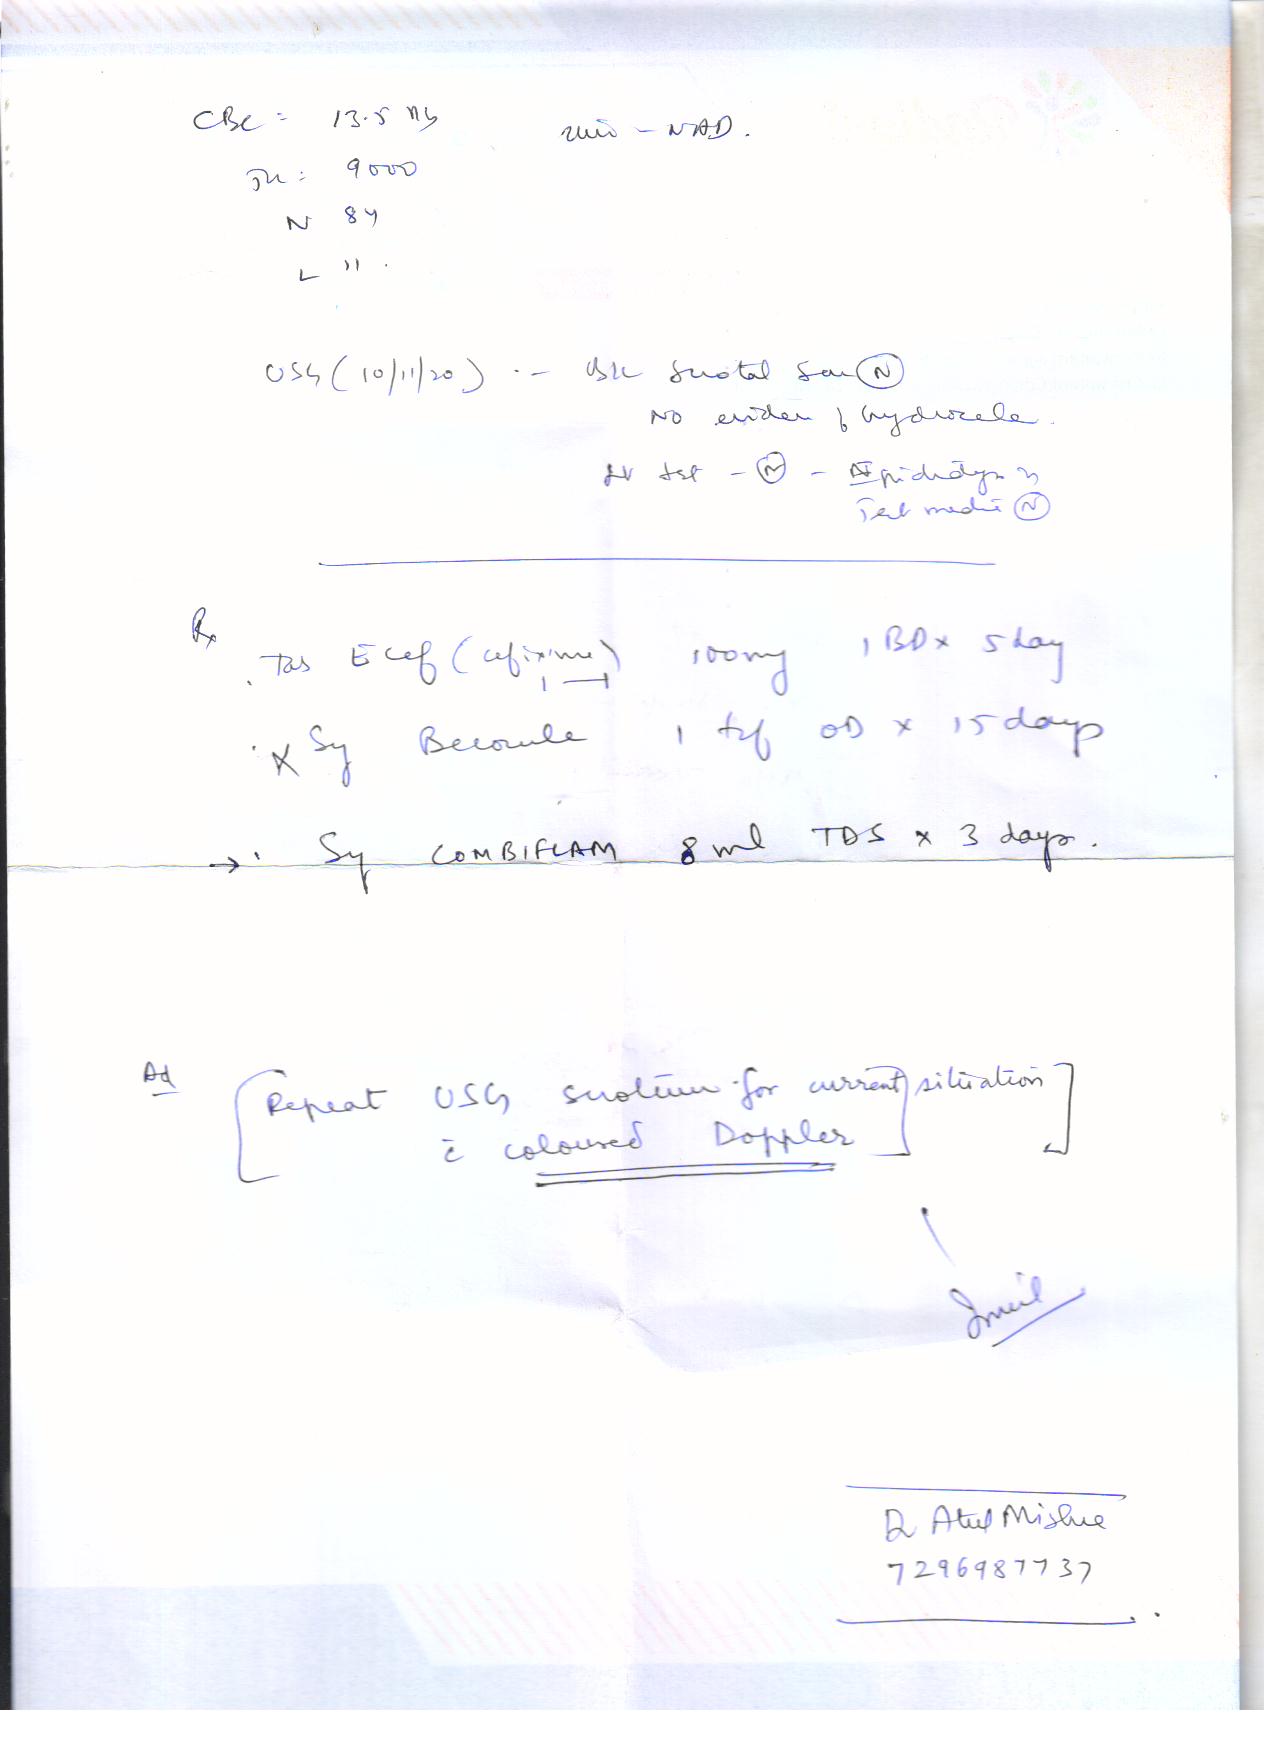 CBC = 13.5 Hb
TLC: 9000
N 84
L 11.
Urine - NAD.
USG (10/11/20) :- B/L Scrotal Scan (N)
No eviden of hydrocele.
test - (N) - Epididymis
Test media (N)
Rx
. Tab Ecef (cefixime) 100mg 1 BD x 5 day
Sy Becosule 1 tsf OD x 15 days
→ . Sy COMBIFLAM 8 ml TDS x 3 days.
Ad
[Repeat USG scrotum for current situation]
c̄ coloured Doppler
Dr Atul Mishra
7296987737